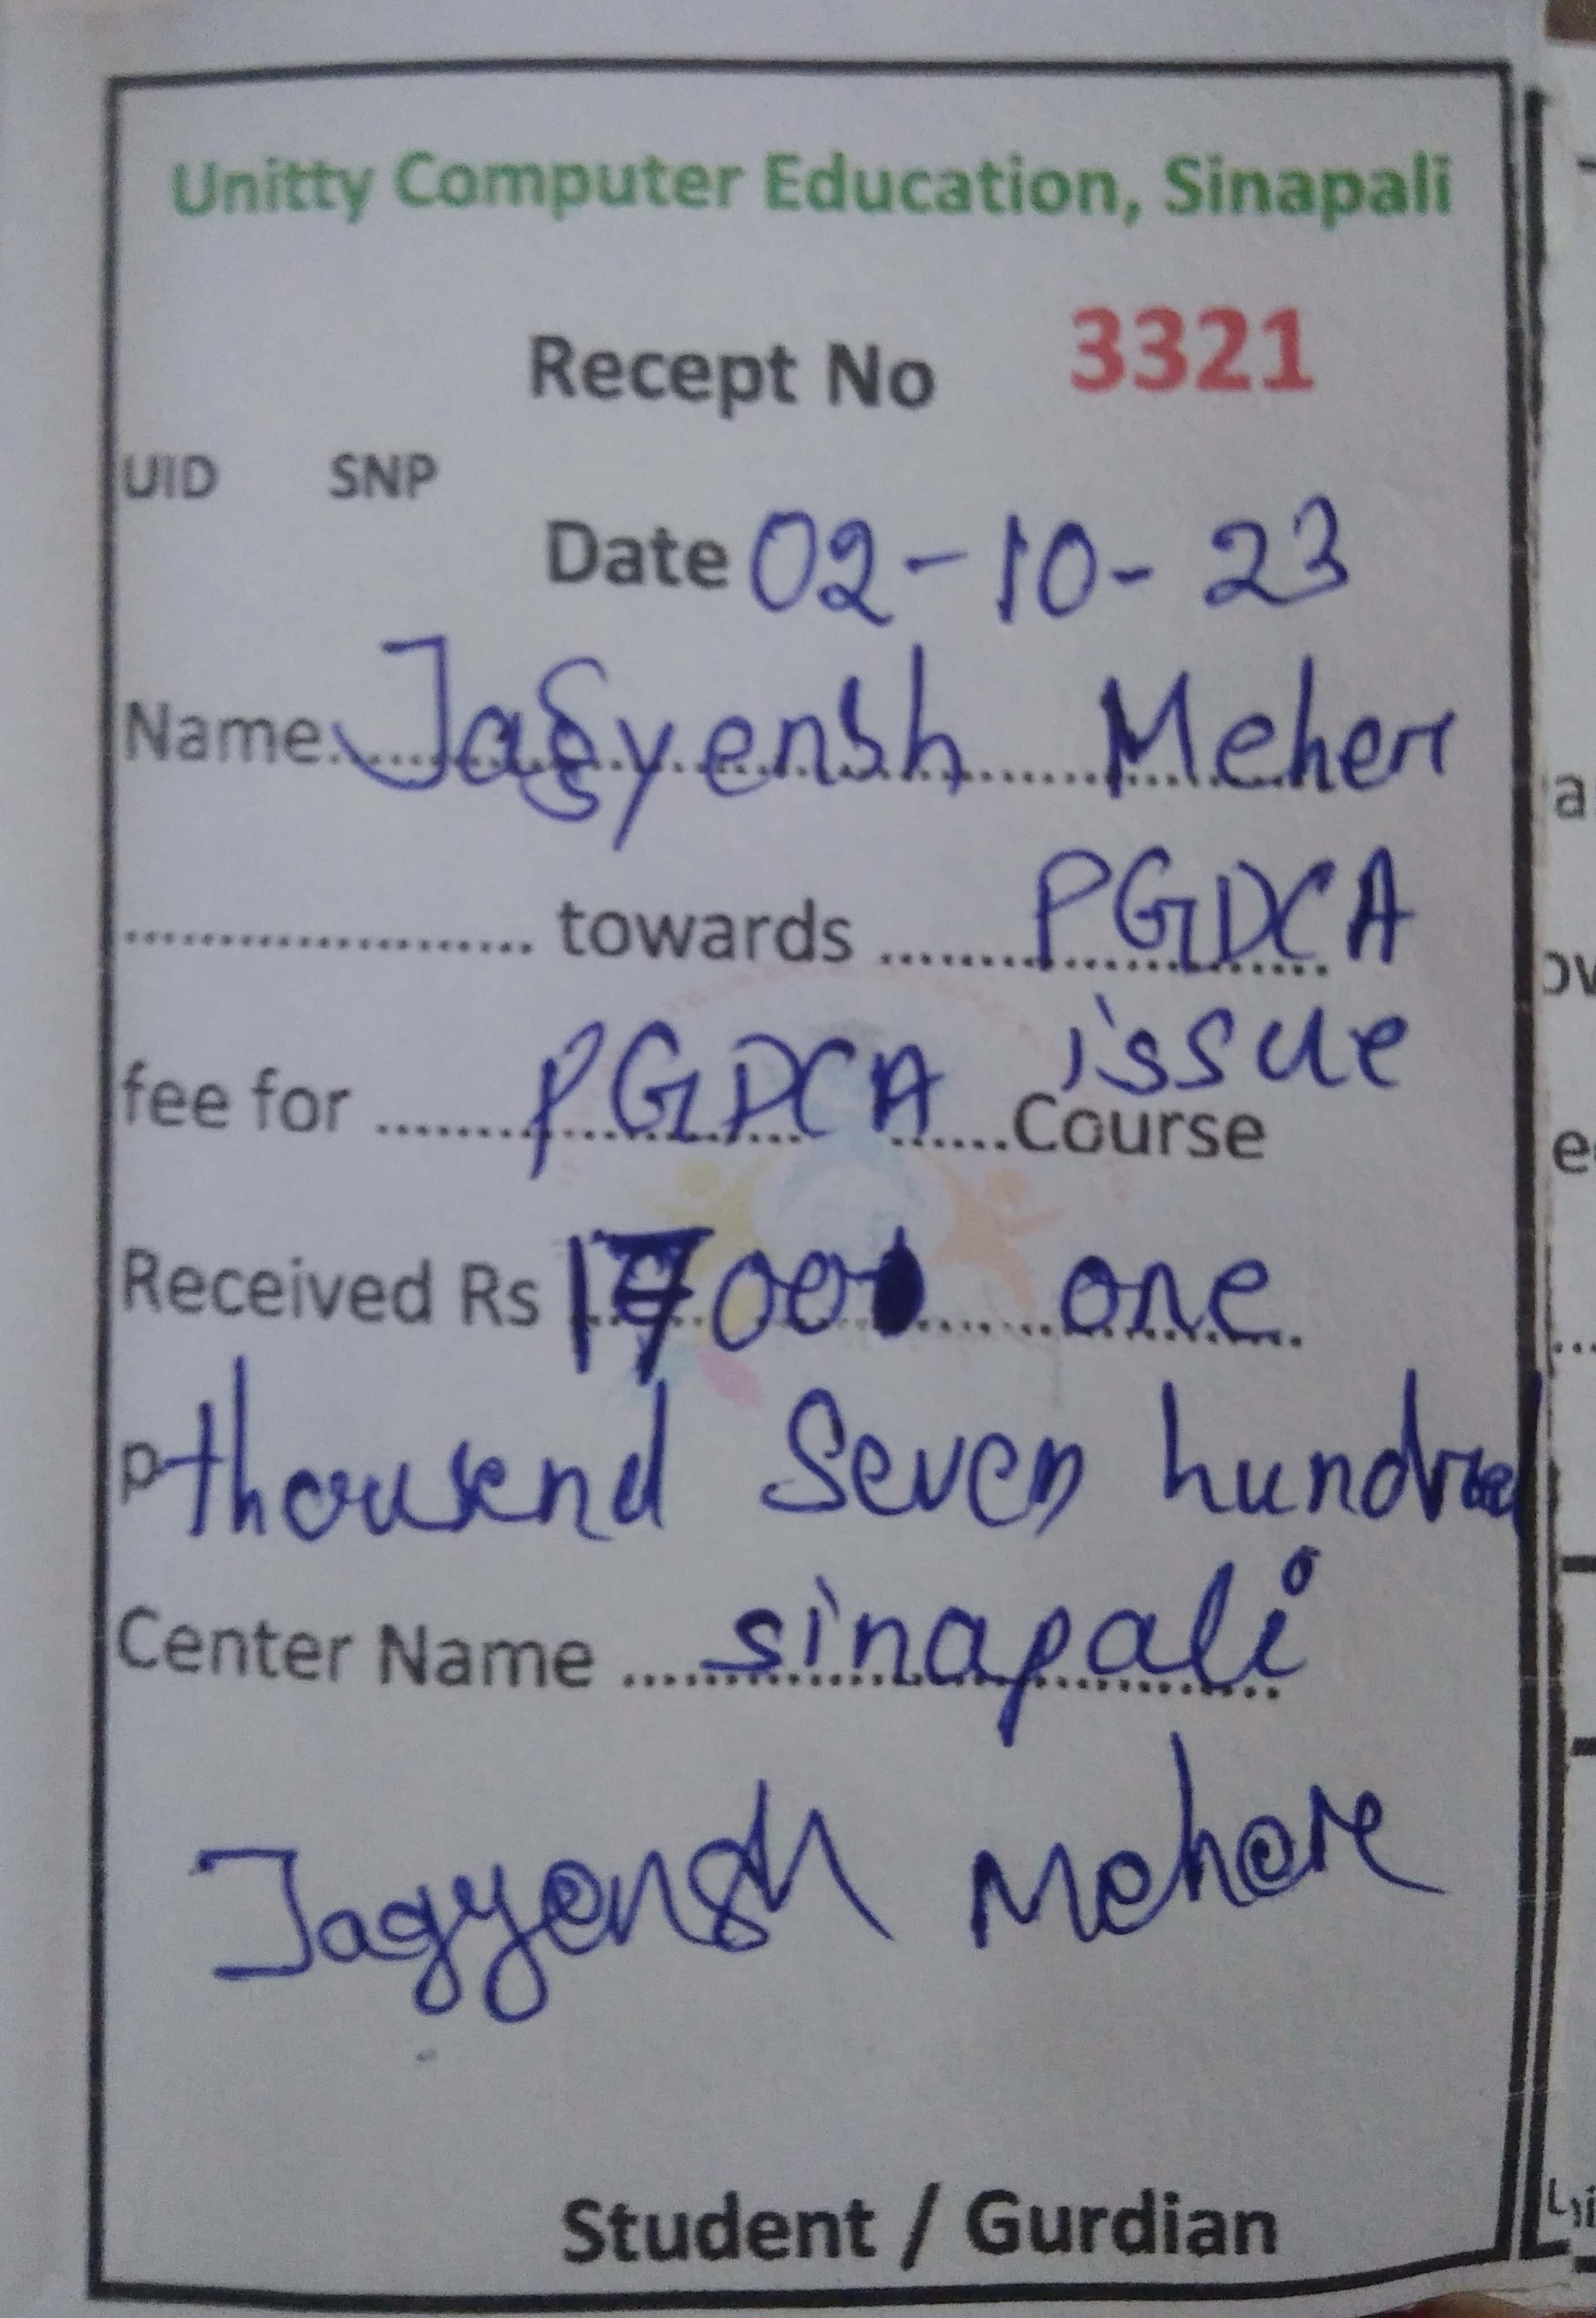 Unitty Computer Education, Sinapali
Recept No 3321
UID SNP
Date 02-10-23
Name Jagyensh Meher
towards PGDCA
issue
fee for PGDCA Course
Received Rs one
thousend Seven hundred
Center Name sinapali
Jagyensh Meher
Student / Gurdian